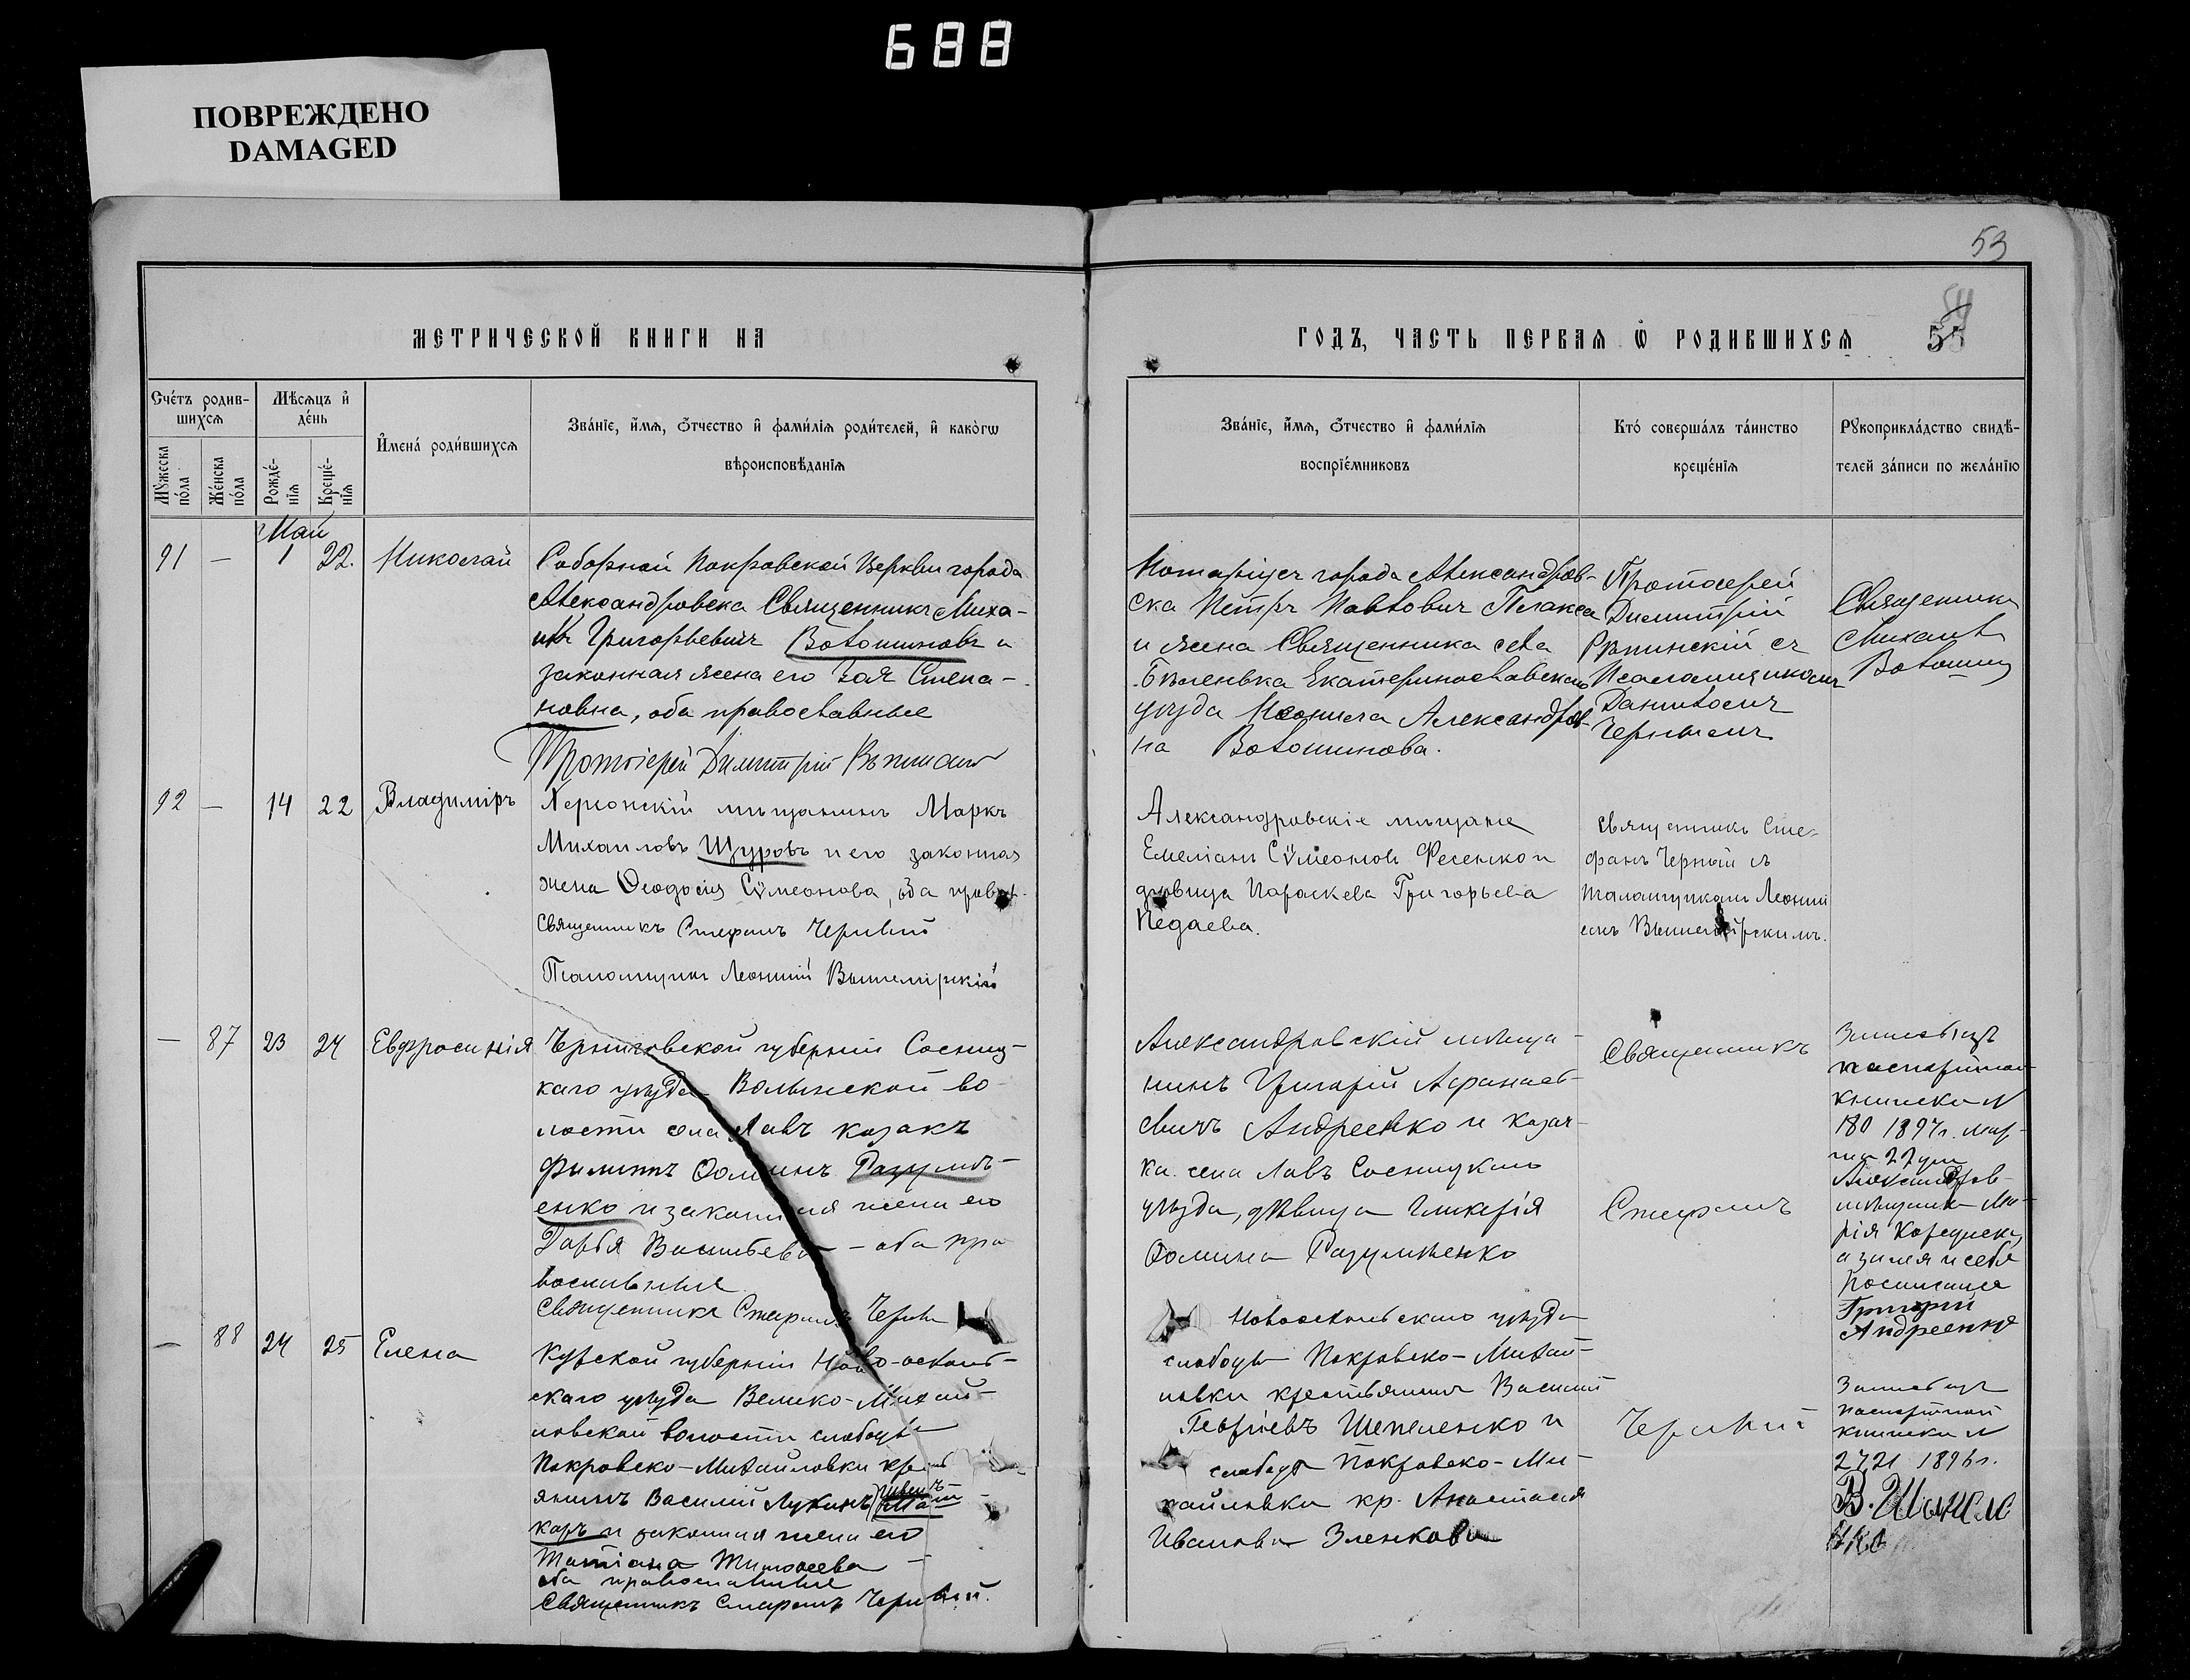 688
ПОВРЕЖДЕНО
DAMAGED
53
МЕТРИЧЕСКОЙ КНИГИ НА
ГОДЪ, ЧАСТЬ ПЕРВАѦ Ѡ РОДИВШИХСѦ
55
Счéтъ родив-
шихсѧ
Мꙋжеска
пóла
Жéнска
пóла
Мѣсѧцъ и҆
дéнь
Рождé-
нїѧ
Крещé-
нїѧ
И҆мена́ роди́вшихсѧ
Зва́нїе, и҆́мѧ, ѻ҆́тчество и҆ фами́лїѧ роди́телей, и҆ како́гѡ
вѣроисповѣ́данїѧ
Зва́нїе, и҆́мѧ, ѻ҆́тчество и҆ фами́лїѧ
воспрїе́мниковъ
Кто́ соверша́лъ та́инство
креще́нїѧ
Рꙋкоприкла́дство свидѣ́-
телей за́писи по жела́нїю
Май
91 — 1 22. Николай
Соборной Покровской Церкви города
Александровска Священникъ Миха-
илъ Григорьевичъ Волошиновъ и
законная жена его Зоя Степа-
новна, оба православные
Протоіерей Димитрій
Нотаріусъ города Александров-
ска Петръ Павловичъ Плакса
и жена Священника села
Екатеринославскаго
уѣзда Александров-
на Волошинова.
Протоіерей
Димитрій
Рѣпинскій съ
Псаломщикомъ
Даниломъ
Чернымъ
Священникъ
Михаилъ
Волошин
92 — 14 22 Владиміръ
Херсонскій мѣщанинъ Маркъ
Михаиловъ Щуровъ и его законная
жена Ѳеодосія Сѵмеонова, оба правосл.
Священникъ Стефанъ Черный
Псаломщикъ Леонтій Вышемірскій
Александровскіе мѣщане
Емеліанъ Сѵмеоновъ Фесенко и
дѣвица Параскева Григорьева
Педаева.
Священникъ Сте-
фанъ Черный съ
псаломщикомъ Леонтi-
емъ Вышемірскимъ.
— 87 23 24 Евфросинія
Черниговской губерніи Сосниц-
каго уѣзда Волынской во-
лости села Лавъ козакъ
Филиппъ Ѳоминъ Разумѣ-
енко и законная жена его
Дарья Васильева — оба пра-
вославные
Священникъ Стефанъ Черный
Александровскій мѣща-
нинъ Григорій Афанась-
евичъ Андреенко и козач-
ка села Лавъ Сосницкаго
уѣзда, дѣвица Гликерія
Ѳомина Разумѣенко
Священникъ
Стефанъ
Черный
паспортной
книжки №
180 1897 г. мар-
та 27 дня
Александров
мѣщанка Ма-
рія
а за нея и себя
Росписался
Григорій
Андреенко
— 88 24 25 Елена
Курской губерніи Ново-осколь-
скаго уѣзда Велико-Михай-
ловской волости слободы
Покровско-Михайловки крест
янинъ Василій Лукинъ
каръ и законная жена его
Татіана Тимоѳеева —
оба православные
Священникъ Стефанъ Черный.
Новооскольскаго уѣзда
слободы Покровско-Михай-
ловки крестьянинъ Василій
Георгіевъ Шепеленко и
слободы Покровско-Ми-
хайловки кр. Анастасія
Иванова Зленкова
паспортной
книжки №
2721 1896 г.